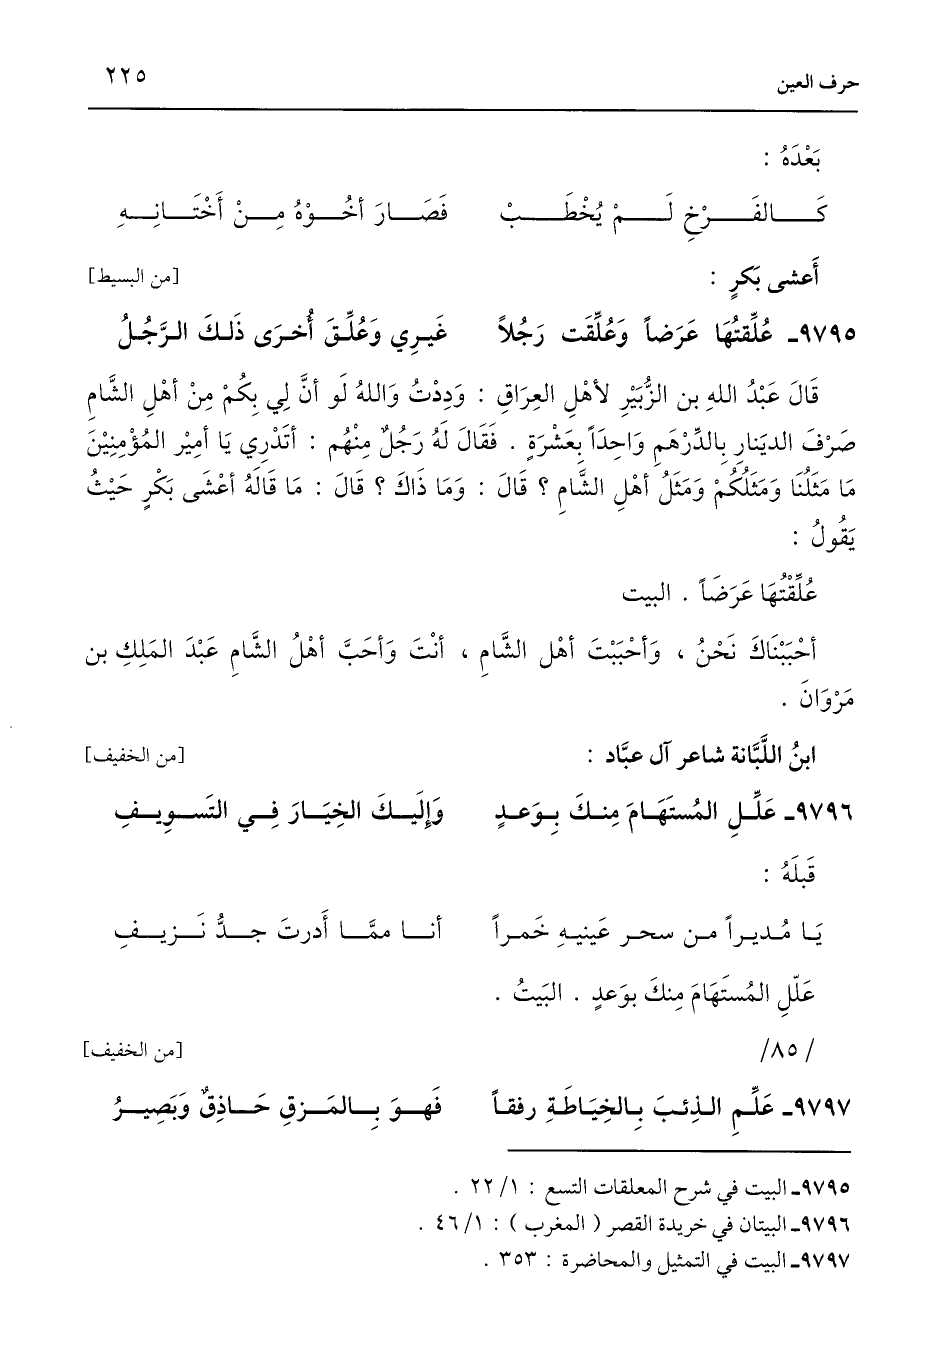 حرف العين ٢٢٥
بَعْدَهُ :
كَـالفَـرْخِ لَـمْ يُخْطَـبْ فَصَـارَ أخُـوْهُ مِـنْ أَخْتَـانِـهِ
أَعشى بَكرٍ : [من البسيط]
٩٧٩٥ـ عُلِّقتُهَا عَرَضاً وَعُلِّقَت رَجُلاً غَيرِي وَعُلِّقَ أُخرَى ذَلكَ الرَّجُلُ
قَالَ عَبْدُ اللهِ بن الزُّبَيْرِ لأهْلِ العِرَاقِ : وَدِدْتُ وَاللهُ لَو أنَّ لِي بِكُمْ مِنْ أهْلِ الشَّامِ
صَرْفَ الدِينَارِ بِالدِّرْهَمِ وَاحِدَاً بِعَشْرَةٍ . فَقَالَ لَهُ رَجُلٌ مِنْهُم : أتَدْرِي يَا أمِيْر المُؤْمِنِيْنَ
مَا مَثَلُنَا وَمَثَلُكُمْ وَمَثَلُ أهْلِ الشَّامِ ؟ قَالَ : وَمَا ذَاكَ ؟ قَالَ : مَا قَالَهُ أعْشَى بَكْرٍ حَيْثُ
يَقُولُ :
عُلِّقْتُهَا عَرَضَاً . البيت
أحْبَبْنَاكَ نَحْنُ ، وَأحْبَبْتَ أهْل الشَّامِ ، أنْتَ وَأحَبَّ أهْلُ الشَّامِ عَبْدَ المَلِكِ بن
مَرْوَانَ .
ابنُ اللَّبَّانة شاعر آل عبَّاد : [من الخفيف]
٩٧٩٦ـ عَلِّـلِ المُستَهَـامَ مِنـكَ بِـوَعـدٍ وَإِلَيـكَ الخِيَـارَ فِـي التَسـوِيـفِ
قَبلَهُ :
يَـا مُـديـراً مـن سحـر عَينيـهِ خَمـراً أنـا ممَّـا أَدرتَ جـدُّ نَـزيـفِ
عَلّلِ المُستَهَامَ مِنكَ بوَعدٍ . البَيتُ .
/ ٨٥/ [من الخفيف]
٩٧٩٧ـ عَلِّـمِ الـذِئـبَ بِـالخِيَـاطَـةِ رِفقـاً فَهـوَ بِـالمَـزقِ حَـاذِقٌ وَبَصِيـرُ
٩٧٩٥ـ البيت في شرح المعلقات التسع : ١/ ٢٢ .
٩٧٩٦ـ البيتان في خريدة القصر ( المغرب ) : ١/ ٤٦ .
٩٧٩٧ـ البيت في التمثيل والمحاضرة : ٣٥٣ .